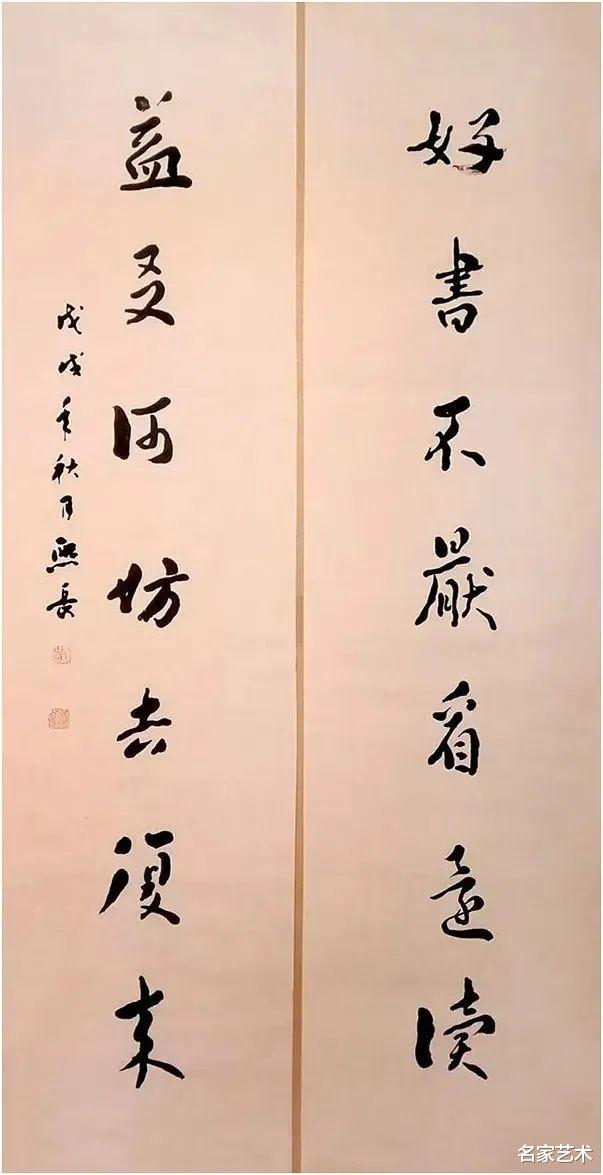 好書不厭看還讀
益友何妨去復来
戊戌年秋月熙長
名家艺术